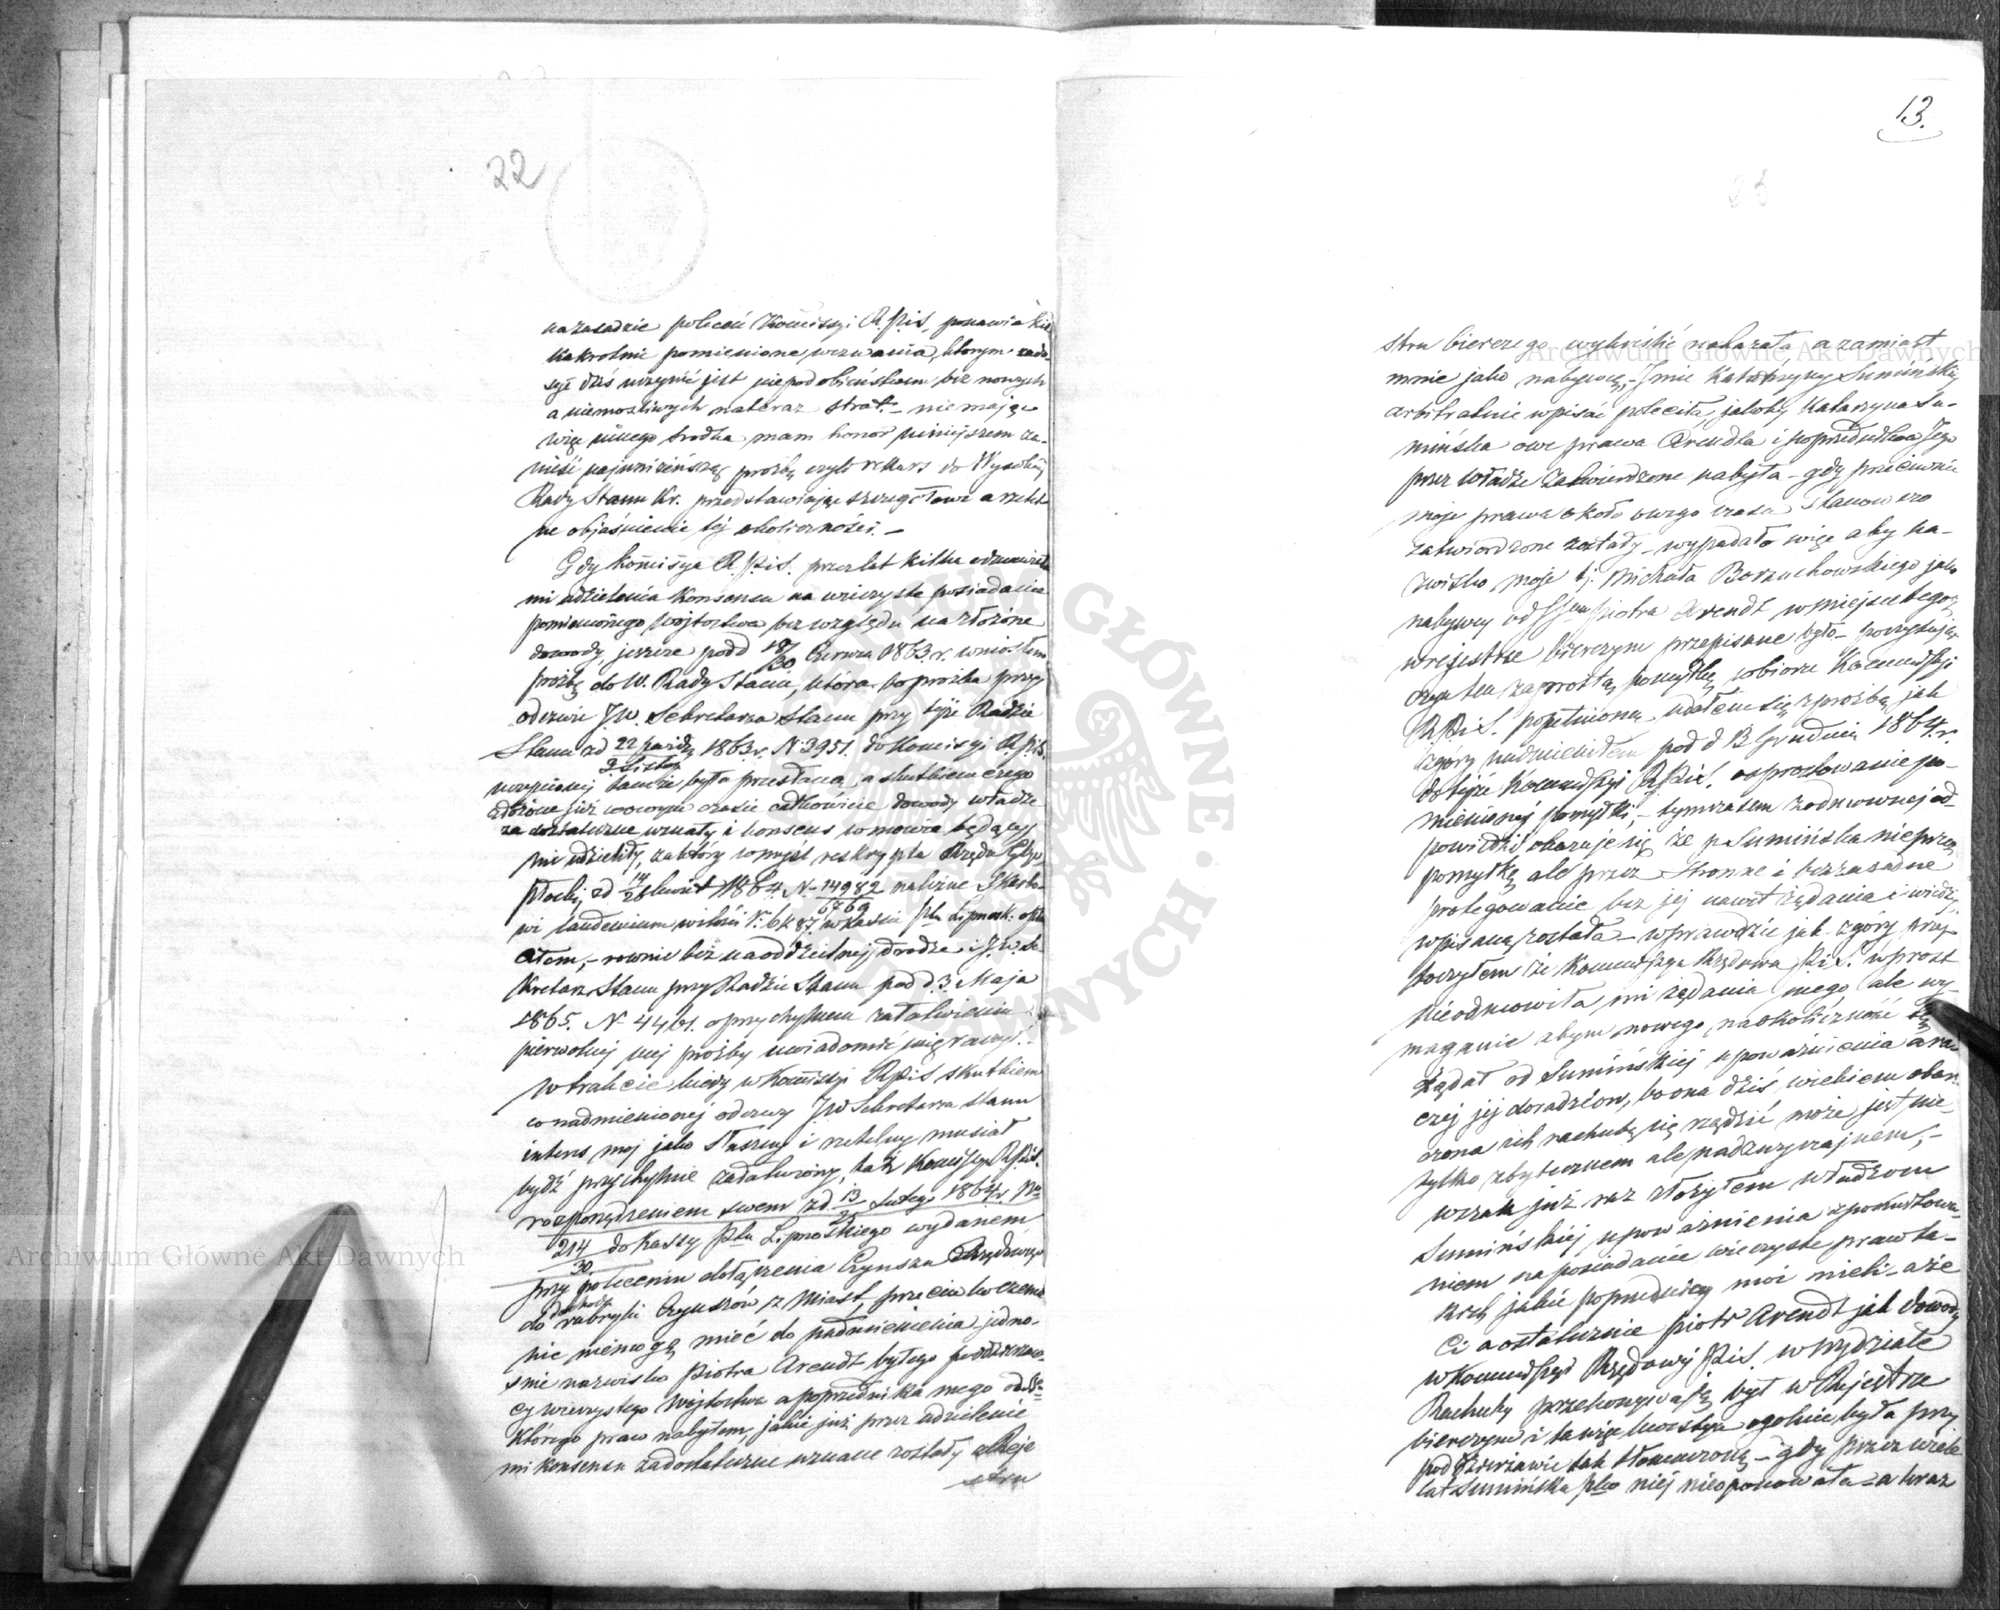 22
na zasadzie poleceń Kommissyi R. P. i S. ponawia kil
kakrotnie pomienione wezwania, którym zado
syć dziś uczynić jest niepodobieństwem bez nowych
a niemożliwych nateraz strat. – nie mając
więc innego środka mam honor niniejszem za-
nieść najuniżeńszą prośbę czyli rekurs do Wysokiej
Rady Stanu Kr. przedstawiając szczegółowe a rzetel
ne objaśnienie tej okoliczności. –
Gdy Kommisya R. P. i S. przez lat kilka odmawiała
mi udzielenia Konsensu na wieczyste posiadanie
pomienionego Wójtostwa bez względu na złożone
dowody, jeszcze pod d 18/30 Czerwca 1863 r. wniosłem
prośbę do W. Rady Stanu, która to prośba przy
odezwie JW. Sekretarza Stanu przy tejże Radzie
Stanu zd 22 paźdz/3 Listop 1863 r. N 3951. do Komisyi R. P. i S.
uczynionej tamże była przesłana, a skutkiem czego
złożone już wówczas czasie całkowicie dowody władze
za dostateczne uznały i konsens w mowie będący
mi udzieliły, za który w myśl reskryptu Rządu Gub.
Płockiej zd 14/26 Kwiet 1864. N. 14982/6769 należne Skarbo-
wi laudemium w ilości r. 6 k 87. w kassie Ptu Lipnosk: opła
ciłem, – również na oddzielnej drodze i JW. Se
kretarz Stanu przy Radzie Stanu pod d. 3 Maja
1865. N 4461. o przychylnem załatwieniu
pierwotnej mej prośby uwiadomić mię raczył. –
W trakcie kiedy w Komissyi R P i S skutkiem
co nadmienionej odezwy JW Sekretarza Stanu
interes mój jako słuszny i rzetelny musiał
bydź przychylnie zadatwiony, taż Komissya R. P. i S.
rozporządzeniem swem zd 13/25 Lutego 1864 r. No
214/30 do Kassy Ptu Lipnoskiego wydanem
przy poleceniu dołączenia Czynszu Rządowego
do rubryki dochody Czynszów z Miast, przeciw któremu
nic niemogę mieć do nadmienienia jedno-
śnie nazwisko Piotra Arendt byłego poddzierżaw-
cy wieczystego Wójtostwa a poprzednika mego od
którego praw nabyłem, jakie już przez udzielenie
mi konsensu zadostateczne uznane zostały z Reje
stru
13.
stru bierczego wykreślić nakazała, a zamiast
mnie jako nabywcę, – Imie Katarzyny Sumińskiej
arbitralnie wpisać poleciła, jakoby Katarzyna Su-
mińska owe prawa Arendta i poprzednika Jego
przez władze zatwierdzone nabyła – gdy przeciwnie
moje prawa około owego czasu stanowczo
zatwierdzone zostały – wypadało więc aby na-
zwisko moje tj: Michała Borzuchowskiego jako
nabywcy od Piotra Arendt w miejsce tegoż
w rejestrze bierczym przepisane było – poczytując
czyn ten za prostą pomyłkę w biorze Kommissyi
R. P. i S. popełnioną udałem się z prośbą jak
zgóry nadmieniłem pod d 13 Grudnia 1864. r.
do tejże Kommissyi R. P. i S. o sprostowanie po-
mienionej pomyłki, – tymczasem z odmownej od-
powiedzi okazuje się że p. Sumińska nie przez
pomyłkę ale przez stronne i bezzasadne
protegowanie bez jej nawet żądania i wiedzy
wpisaną została – wprawdzie jak zgóry przy-
toczyłem że Kommissya Rządowa P. i S. wprost
nie odmówiła mi żądania mego ale wy-
maganie abym nowego na okoliczność tę
żądał od Sumińskiej upoważnienia a ra-
czej jej doradzców, bo ona dziś wiekiem obar-
czona ich rachubą się rządzić może, jest nie-
tylko zbytecznem ale nadzwyczajnem, –
wszak już raz złożyłem władzom
Sumińskiej upoważnienia z pomieszczo-
niem na posiadanie wieczyste praw ta-
kich jakie poprzednicy moi mieli – a że
ci a ostatecznie Piotr Arendt jak dowody
w Kommissyi Rządowej P. i S. w Wydziale
Rachuby przekonywają był w Rejestrze
bierczym i ta więc kwestya ogólnie była przy
pod dzierżawie tak tłomaczoną – gdy przez wiele
lat Sumińska pko niej nieoponowała – a wraz
Archiwum Główne Akt Dawnych
Archiwum Główne Akt Dawnych
ARCHIWUM GŁÓWNE AKT DAWNYCH